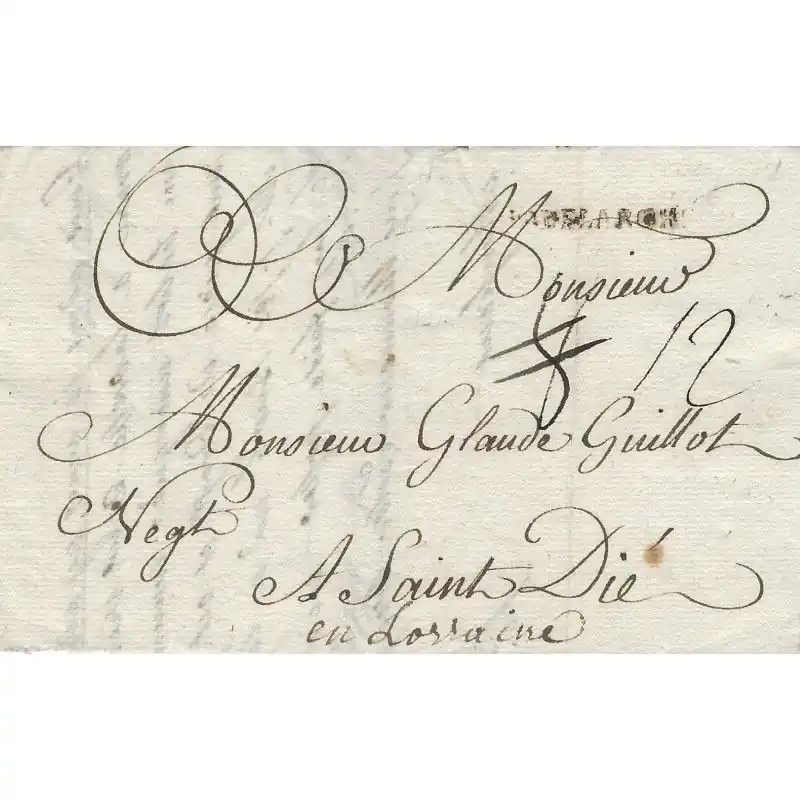 Monsieur
8 12
Monsieur Glaude Guillot
Negt
A Saint Dié
en Lorraine